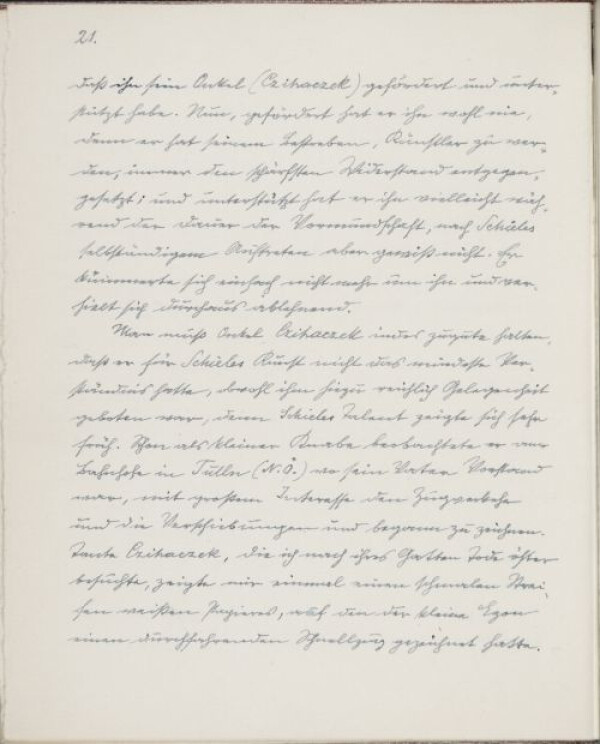 21.
daß ihn sein Onkel (Czihaczek) gefördert und unter-
stützt habe. Nun, gefördert hat er ihn wohl nie,
denn er hat seinem Bestreben, Künstler zu wer-
den, immer den schärfsten Widerstand entgegen-
gesetzt; und unterstützt hat er ihn vielleicht wäh-
rend der Dauer der Vormundschaft, nach Schieles
selbständigem Auftreten aber gewiß nicht. Er
kümmerte sich einfach nicht mehr um ihn und ver-
hielt sich durchaus ablehnend.
Man muß Onkel Czihaczek indes zugute halten,
daß er für Schieles Kunst nicht das mindeste Ver-
ständnis hatte, obwohl ihm hiezu reichlich Gelegenheit
geboten war, denn Schieles Talent zeigte sich sehr
früh. Schon als kleiner Knabe beobachtete er am
Bahnhofe in Tulln (N.Ö.) wo sein Vater Vorstand
war, mit großem Interesse den Zugverkehr
und die Verschiebungen und begann zu zeichnen.
Tante Czihaczek, die ich nach ihres Gatten Tode öfter
besuchte, zeigte mir einmal einen schmalen Strei-
fen weißen Papieres, auf den der kleine Egon
einen durchfahrenden Schnellzug gezeichnet hatte.